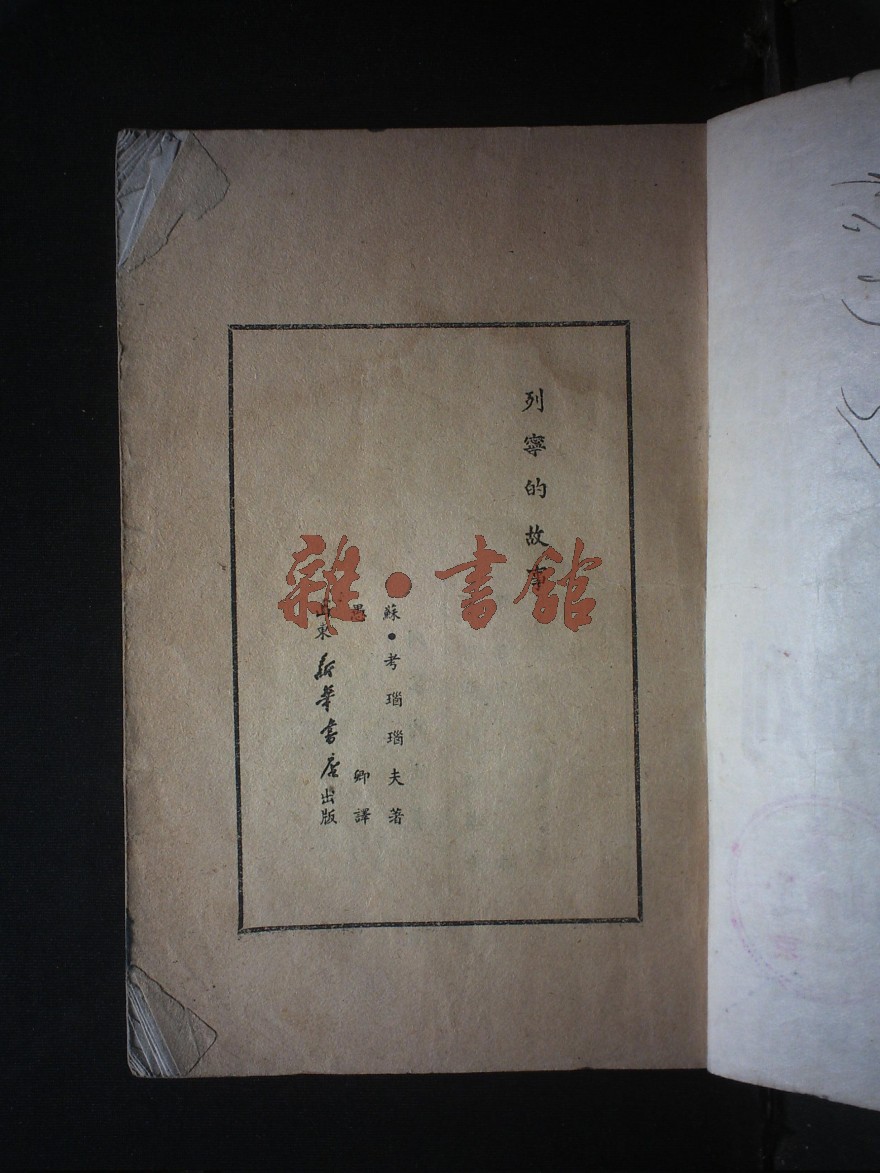 列寧的故事
蘇•考瑙瑙夫著
愚卿譯
山東新華書店出版
雜•書館